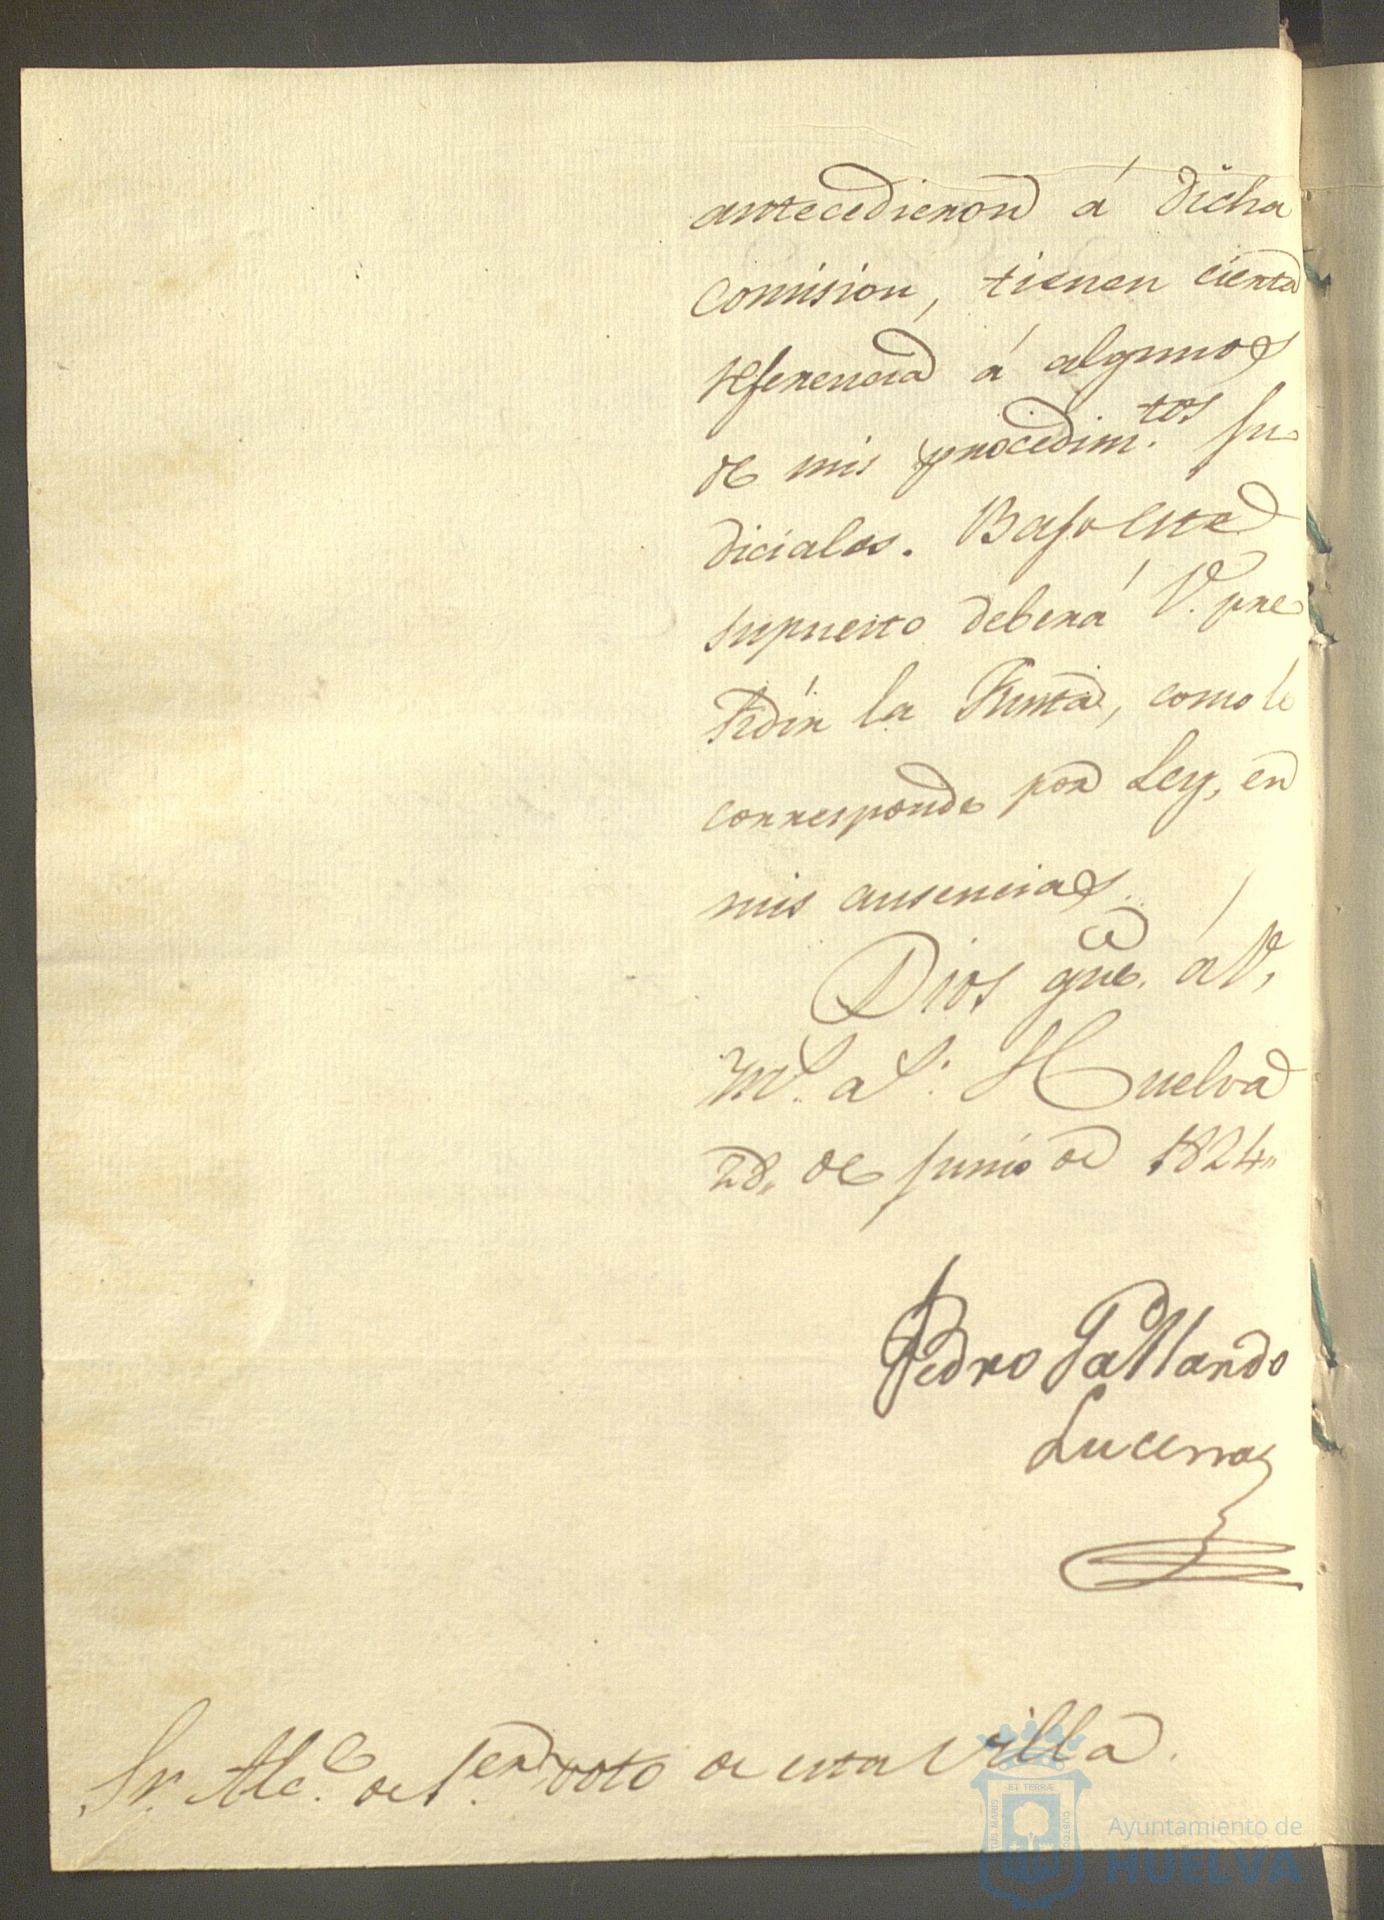 antecedieron á dicha
comision, tienen cierta
referencia á algunos
de mis procedim.tos Ju-
diciales. Bajo este
supuesto deberá V. pre
sidir la Junta, como le
corresponde por Ley, en
mis ausencias.
Dios gue. á V.
m.s a.s Huelva
28, de Junio de 1824,,
Pedro Gallardo
Lucena
Sr. Alc.e de 1.er voto de esta Villa.
ET TERRÆ
CUSTODIA
Ayuntamiento de
HUELVA